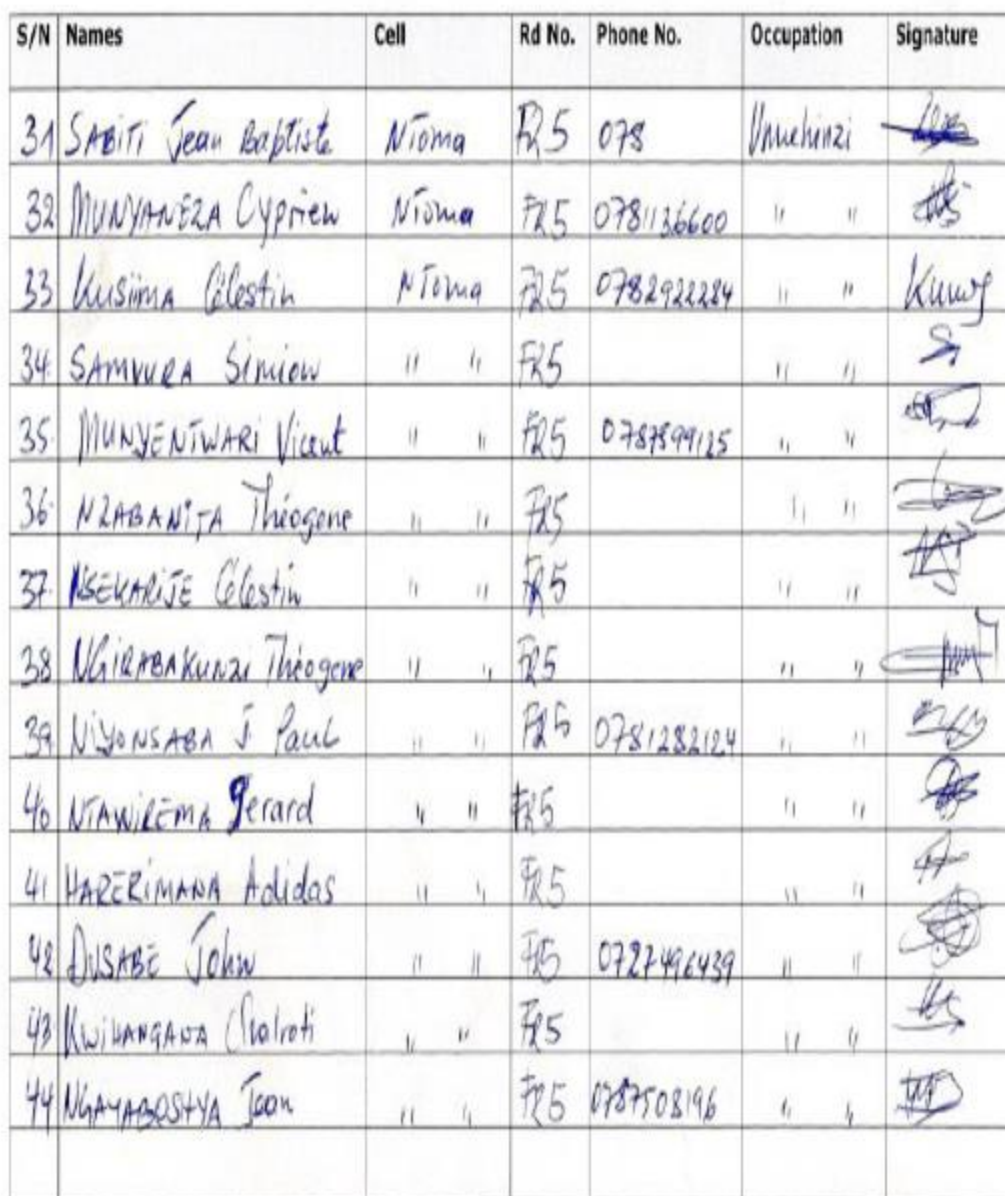 S/N Names Cell Rd No. Phone No. Occupation Signature
31 SABITI Jean Baptiste Ntoma FR5 078 Umuhinzi
32 MUNYANEZA Cyprien Ntoma FR5 0781136600 " "
33 KUSIIMA Célestin Ntoma FR5 0782922284 " "
34. SAMVURA Simion " " FR5 " "
35. MUNYENTWARI Vicent " " FR5 0787899125 " "
36. NZABANITA Théogene " " FR5 " "
37. NSEKARIJE Célestin " " FR5 " "
38 NGIRABAKUNZI Théogene " " FR5 " "
39 NIYONSABA J. Paul " " FR5 0781282124 " "
40 NTAWIREMA Gerard " " FR5 " "
41 HARERIMANA Adidas " " FR5 " "
42 DUSABE John " " FR5 0727496439 " "
43 " " FR5 " "
44 NGAYABOSHYA Jean " " FR5 0787508196 " "